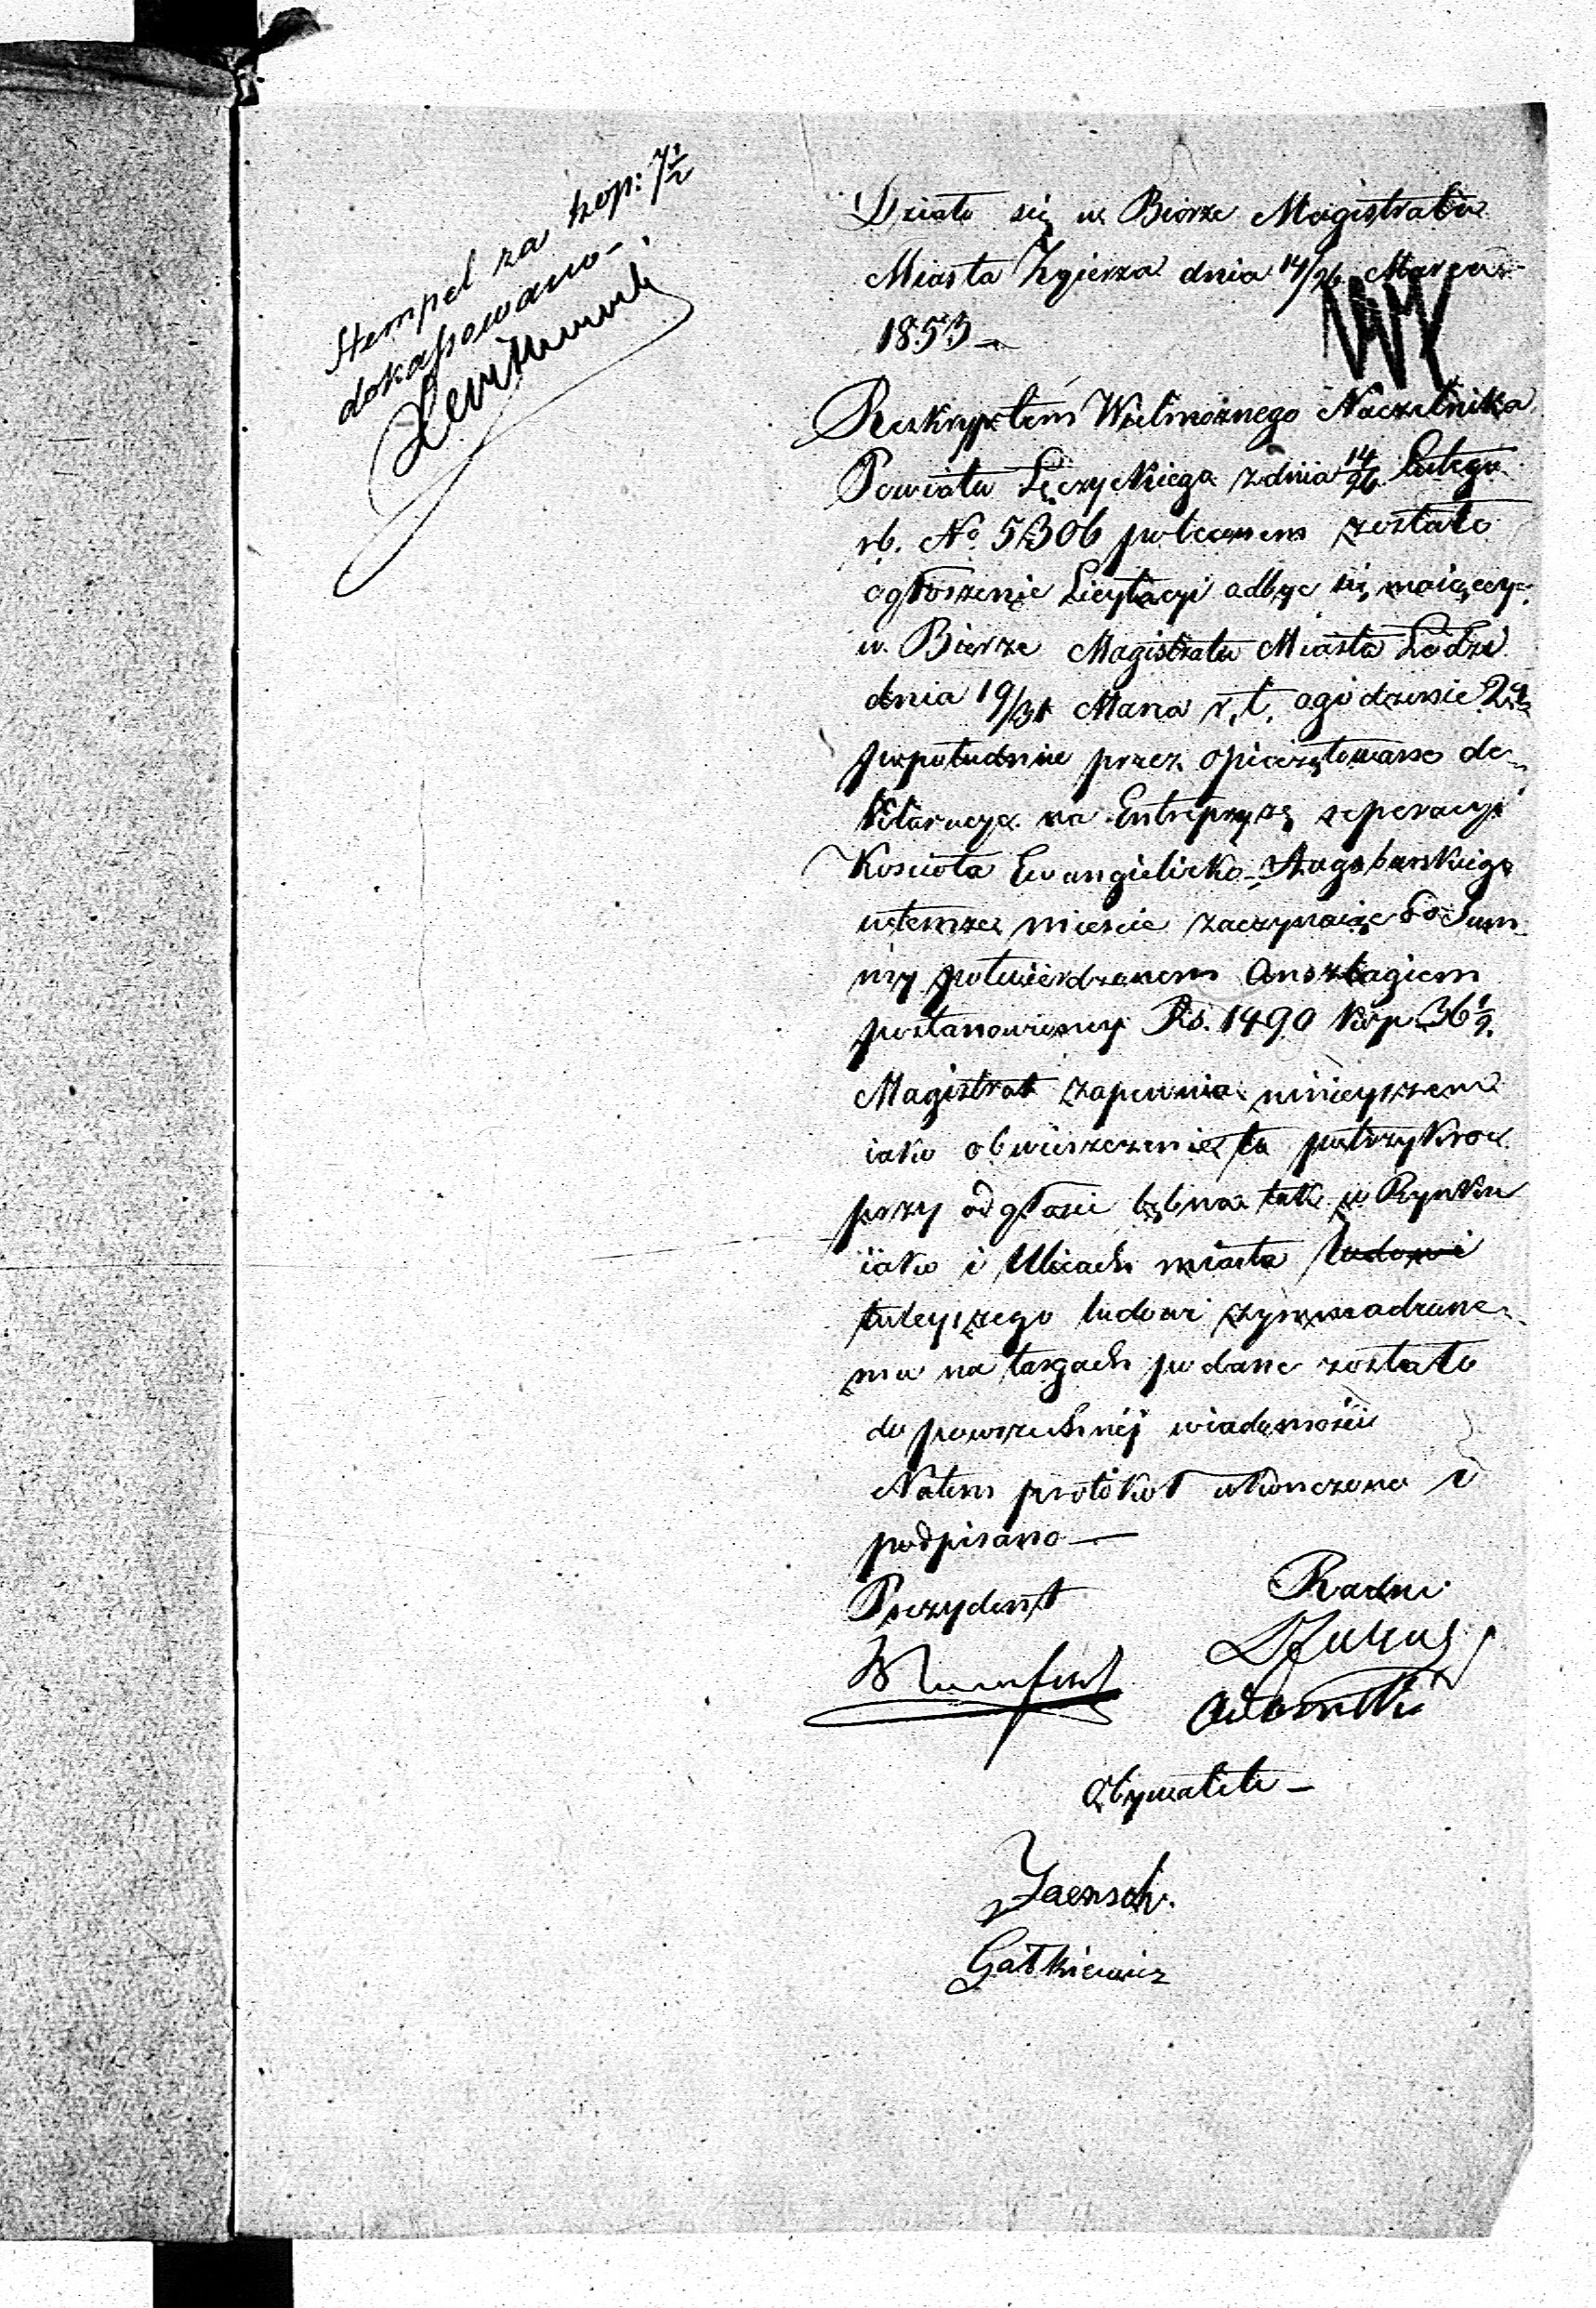 Stempel za kop: 7½
dokassowano
Działo się w Biórze Magistratu
Miasta Zgierza dnia 14/26 Marca
1853 —
Reskryptem Wielmożnego Naczelnika
Powiatu Łęczyckiego z dnia 14/26 Lutego
rb. No 5306 poleconem zostało
ogłoszenie Licytacyi odbyc się maiącey
w Biórze Magistratu Miasta Łodzi
dnia 19/31 Marca r. t. o godzinie 2ej
popołudniu przez opieczętowane de-
klaracye na Entrepryzę reperacyi
Kościoła Ewangielicko-Augsburskiego
wtemże mieście zaczynaiąc od Sum-
my potwierdzonem Anszlagiem
postanowioney Rs. 1490 kop. 36½.
Magistrat zapewnia ninieyszem
iako obwieszczenie to potrzykroc
przy odgłosie bębna tak w Rynku
iako i Ulicach miasta ludowi
tuteyszego ludowi zgromadzone-
mu na targach podane zostało
do powszechnéj wiadomości
Natem protokół ukonczono i
podpisano —
Prezydent
Radni
Obywatele —
Jaensch.
Gałkiewicz